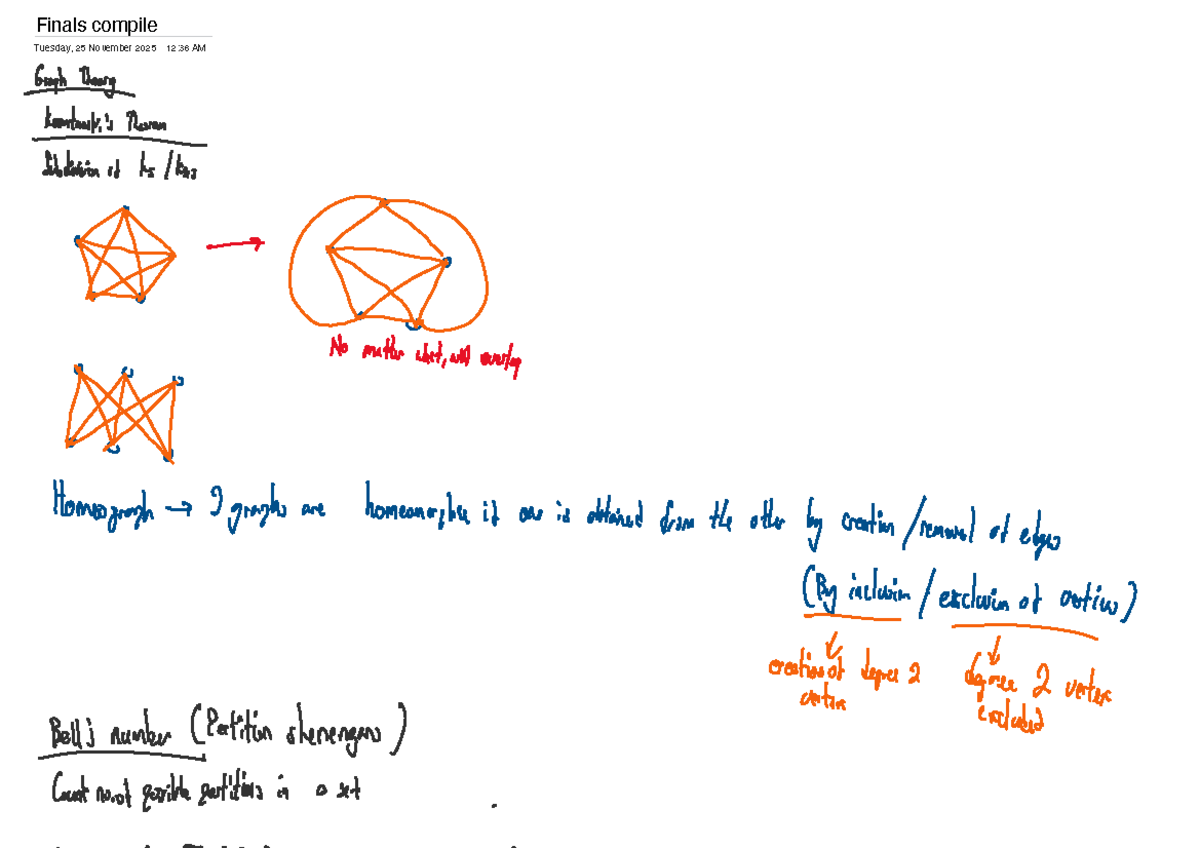 Finals compile
Tuesday, 25 November 2025 12:36 AM
Graph Theory
Kuratowski's Theorem
Subdivision of K5 / K3,3
No matter what, will overlap
Homeograph → 2 graphs are homeomorphic if one is obtained from the other by creation / removal of edges
(By inclusion / exclusion of vertices)
creation of degree 2 vertex
degree 2 vertex excluded
Bell's number (Partition shenengans)
Count no. of possible partitions in a set